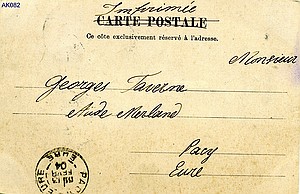 AK082
Imprimée
CARTE POSTALE
Ce côté exclusivement réservé à l'adresse.
Monsieur
Georges Taverne
Pacy
Eure
FEVR
04
EURE